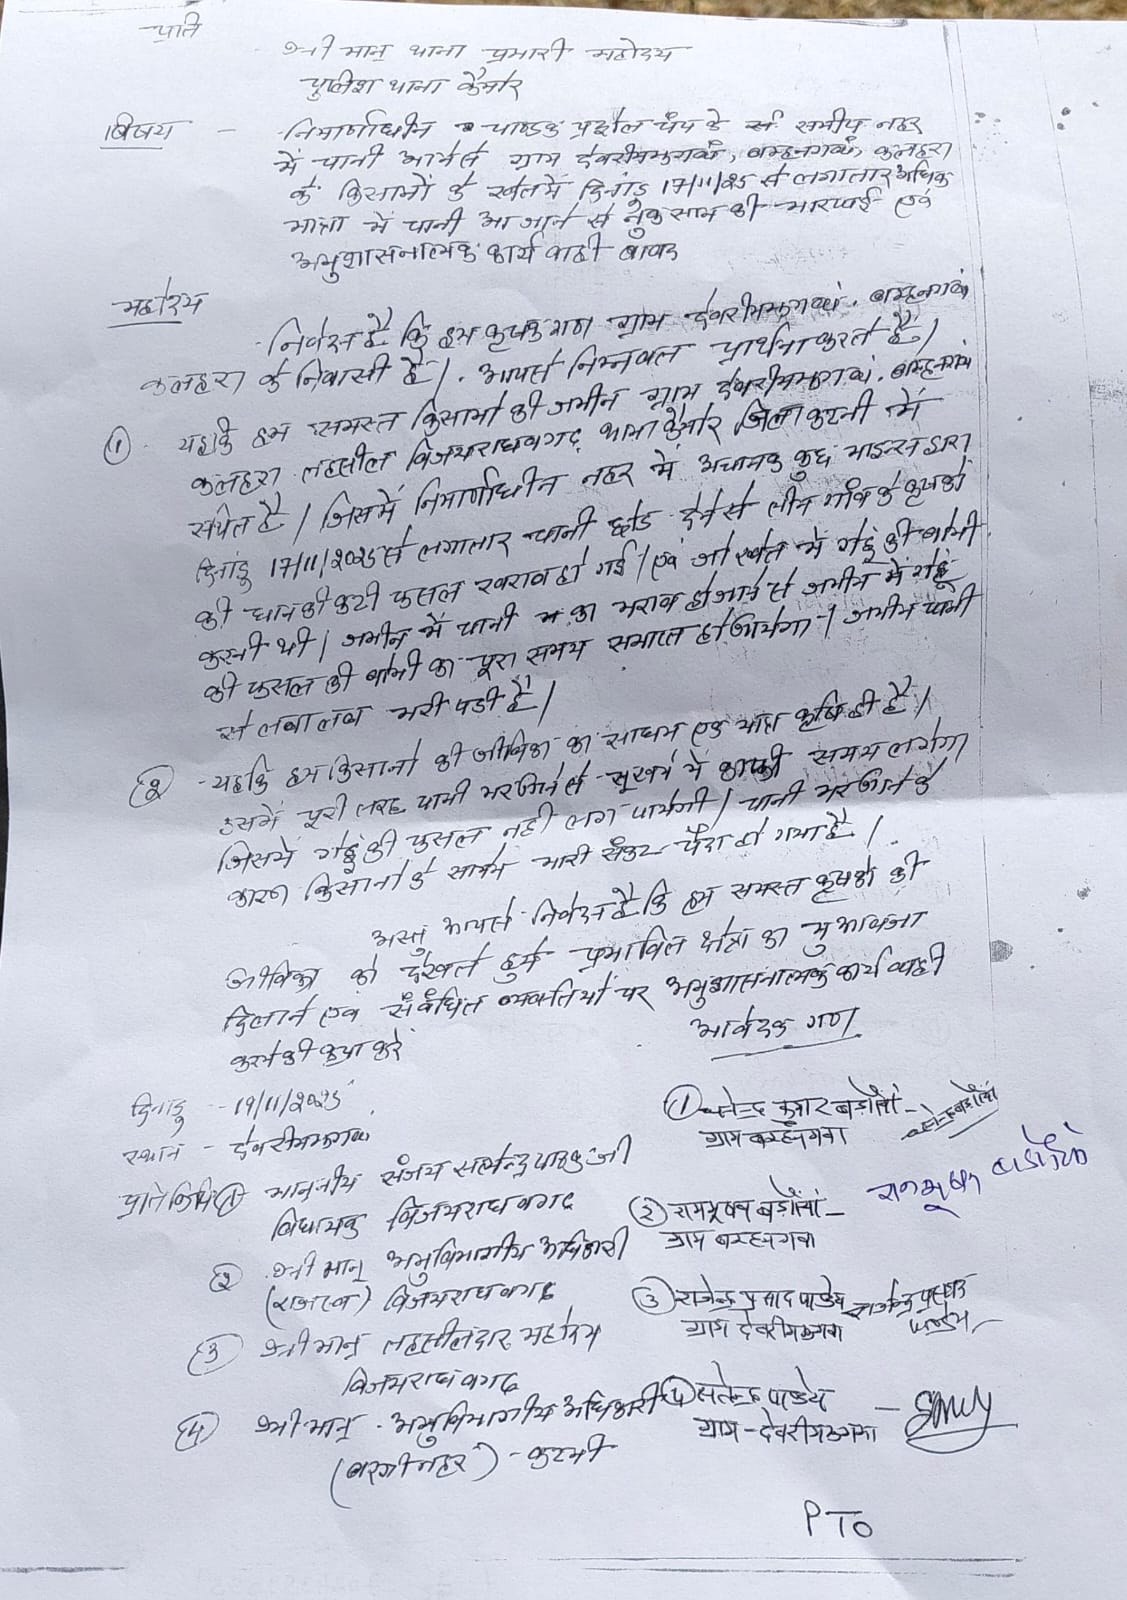 प्रति
श्रीमान् थाना प्रभारी महोदय
पुलिश थाना कैमोर
विषय - निमार्णाधीन पाण्डेक प्रट्रोल पंप के समीप नहर
में पानी आनेसे ग्राम देवरीमझगवां, बम्हनगवां, कलहरा
के किसानों के खेतमें दिनांक 17/11/25 से लगातार अधिक
मात्रा में पानी आ जाने से नुकसान की भारपाई एवं
अनुशासनात्मक कार्यवाही बावत
महोदय
निवेदन है कि हम कृषकगण ग्राम देवरीमझगवां, बम्हनगवां
कलहरा के निवासी है। आपसे निम्नवत प्रार्थना करते है।
① यहकि हम समस्त किसानों की जमीन ग्राम देवरीमझगवां, बम्हनगवां
कलहरा तहसील विजयराघवगढ़ थाना कैमोर जिला कटनी में
स्थित है। जिसमें निमार्णाधीन नहर में अचानक कुछ माइन्स द्वारा
दिनांक 17/11/2025 से लगातार पानी छोड देने से तीन गाँव के कृषकों
की धान की कटी फसल खराब हो गई। एवं जो खेत में गेहूं की बोनी
करनी थी। जमीन में पानी का भराव हो जाने से जमीन में गेहूं
की फसल की बोनी का पूरा समय समाप्त हो जायेगा। जमीन पानी
से लबालब भरी पडी है।
② यहकि हम किसानो की जीविका का साधन एक मात्र कृषि ही है।
उसमें पूरी तरह पानी भर जाने से सूखने में काफी समय लगेगा
जिसमें गेहूं की फसल नही लग पायेगी। पानी भर जाने के
कारण किसानो के सामने भारी संकट पैदा हो गया है।
अस्तु आपसे निवेदन है कि हम समस्त कृषको की
जीविका को देखते हुये प्रभावित क्षेत्रों का मुआवजा
दिलाने एवं संबंधित व्यक्तियों पर अनुशासनात्मक कार्यवाही
करने की कृपा करें
आवेदक गण
दिनांक - 19/11/2025
स्थान - देवरीमझगवां
प्रतिलिपि ① माननीय संजय सत्येन्द्र पाठक जी
विधायक विजयराघवगढ़
② श्रीमान् अनुविभागीय अधिकारी
(राजस्व) विजयराघवगढ़
③ श्रीमान् तहसीलदार महोदय
विजयराघवगढ़
④ श्रीमान् अनुविभागीय अधिकारी
(बरगी नहर) - कटनी
① कुमार बड़ोलयां -
ग्राम बम्हनगवा
② रामभूषण बड़ोलयां -
ग्राम बम्हनगवा
रामभूषण
③ राजेन्द्र प्रसाद पाण्डेय
ग्राम देवरीमझगवा
राजेन्द्र प्रसाद
पाण्डेय
④ सतेन्द्र पाण्डेय -
ग्राम - देवरीमझगवा
PTO